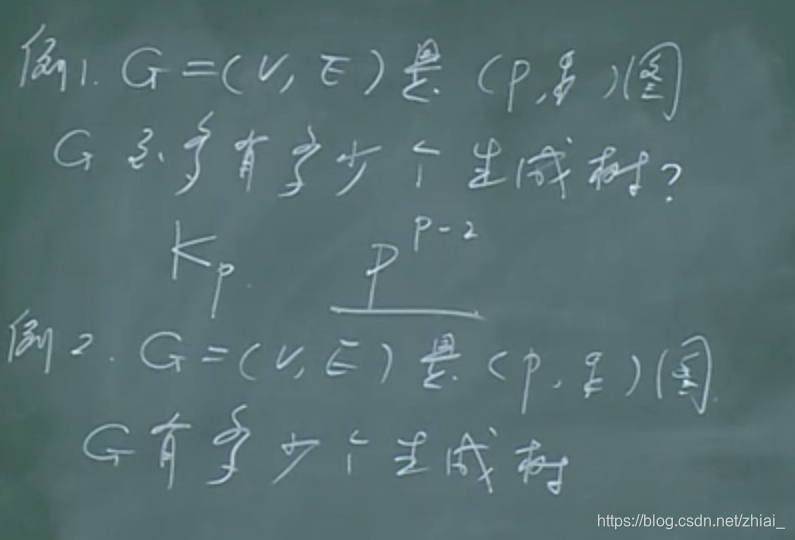 例1. G=(V,E)是(p,q)图
G至多有多少个生成树?
Kp. p^{p-2}
例2. G=(V,E)是(p,q)图.
G有多少个生成树
https://blog.csdn.net/zhiai_